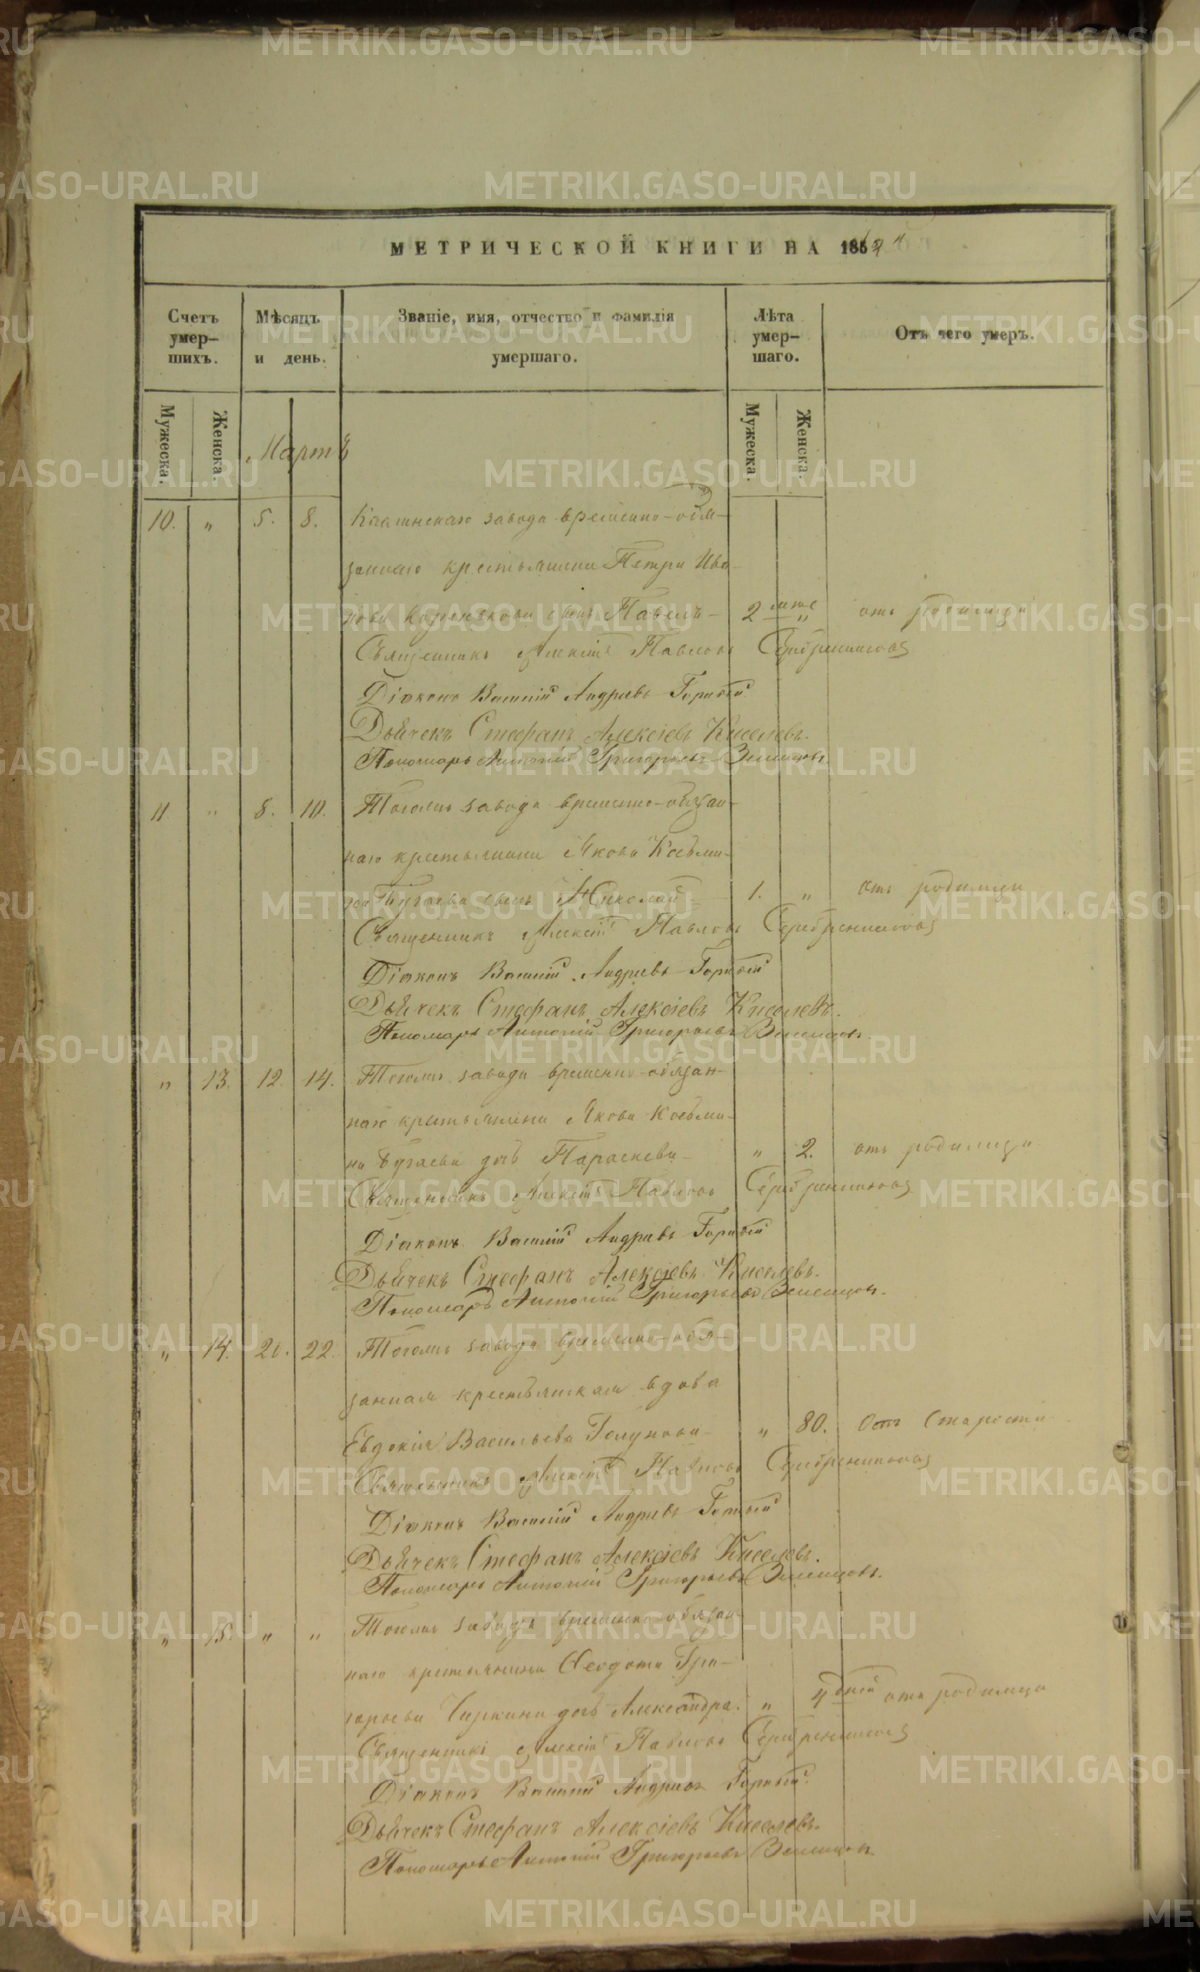 МЕТРИЧЕСКОЙ КНИГИ НА 186
Счетъ умер-шихъ.
Мѣсяцъ и день.
Званіе, имя, отчество и фамилія умершаго.
Лѣта умер-шаго.
Отъ чего умеръ.
Мужеска.
Женска.
Мужеска.
Женска.
Мартъ
10. " 5. 8. завода временно-обя-
заннаго крестьянина Петра Ива-
нова сынъ Павелъ - 2 " отъ родимца
Священникъ Алексій Павловъ Серебренниковъ
Діаконъ Василій Андреевъ Горный
Дьячекъ Стефанъ Алексіевъ Киселевъ.
Пономарь Антоній Григорьевъ Земенцовъ
11 " 8. 10. Тогожъ завода временно-обязан-
наго крестьянина Якова Козьми-
на Бугаева сынъ Николай 1. " отъ родимца
Священникъ Алексій Павловъ Серебренниковъ
Діаконъ Василій Андреевъ Горный
Дьячекъ Стефанъ Алексіевъ Киселевъ.
Пономарь Антоній Григорьевъ Земенцовъ.
" 13. 12. 14. Тогожъ завода временно-обязан-
наго крестьянина Якова Козьми-
на Бугаева дочь Параскева - " 2. отъ родимца
Священникъ Алексій Павловъ Серебренниковъ
Діаконъ Василій Андреевъ Горный
Дьячекъ Стефанъ Алексіевъ Киселевъ.
Пономарь Антоній Григорьевъ Земенцовъ.
" 14. 20. 22. Тогожъ завода временно-обя-
занная крестьянская вдова
Евдокія Васильева Голунова - " 80. Отъ Старости
Священникъ Алексій Павловъ Серебренниковъ
Діаконъ Василій Андреевъ Горный
Дьячекъ Стефанъ Алексіевъ Киселевъ.
Пономарь Антоній Григорьевъ Земенцовъ.
" 15. " " Тогожъ завода временно-обязан-
наго крестьянина Ѳеодота Гри-
горьева дочь Александра. " 4 дней отъ родимца
Священникъ Алексій Павловъ Серебренниковъ
Діаконъ Василій Андреевъ Горный.
Дьячекъ Стефанъ Алексіевъ Киселевъ.
Пономарь Антоній Григорьевъ Земенцовъ
METRIKI.GASO-URAL.RU